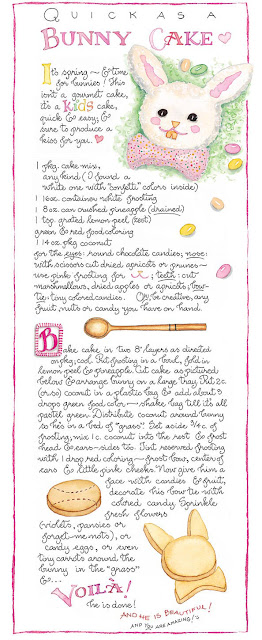 QUICK AS A
BUNNY CAKE
It's spring ~ & time
for bunnies! This
isn't a gourmet cake,
it's a KIDS cake,
quick & easy; &
sure to produce a
kiss for you.
1 pkg. cake mix,
any kind (I found a
white one with "confetti" colors inside)
1 16oz. container white frosting
1 8oz. can crushed pineapple (drained)
1 tsp. grated lemon peel (zest)
green & red food coloring
1 14 oz. pkg coconut
for the eyes: round chocolate candies; nose:
with scissors cut dried apricots or prunes—
use pink frosting for ; teeth: cut
marshmallows, dried apples or apricots; bow-
tie: tiny colored candies. Or, be creative, any
fruit, nuts or candy you have on hand.
Bake cake in two 8" layers as directed
on pkg; cool. Put frosting in a bowl, fold in
lemon peel & pineapple. Cut cake as pictured
below & arrange bunny on a large tray. Put 2 c.
(or so) coconut in a plastic bag & add about 3
drops green food color — shake bag till it's all
pastel green. Distribute coconut around bunny
so he's on a bed of "grass". Set aside 3/4 c. of
frosting; mix 1 c. coconut into the rest & frost
head & ears—sides too. Tint reserved frosting
with 1 drop red coloring — frost bow, center of
ears & little pink cheeks. Now give him a
face with candies & fruit,
decorate his bow tie with
colored candy. Sprinkle
fresh flowers
(violets, pansies or
forget-me-nots), or
candy eggs, or even
tiny carrots around the
bunny in the "grass"
&...
VOILÀ!
he is done!
AND HE IS BEAUTIFUL!
AND YOU ARE AMAZING!